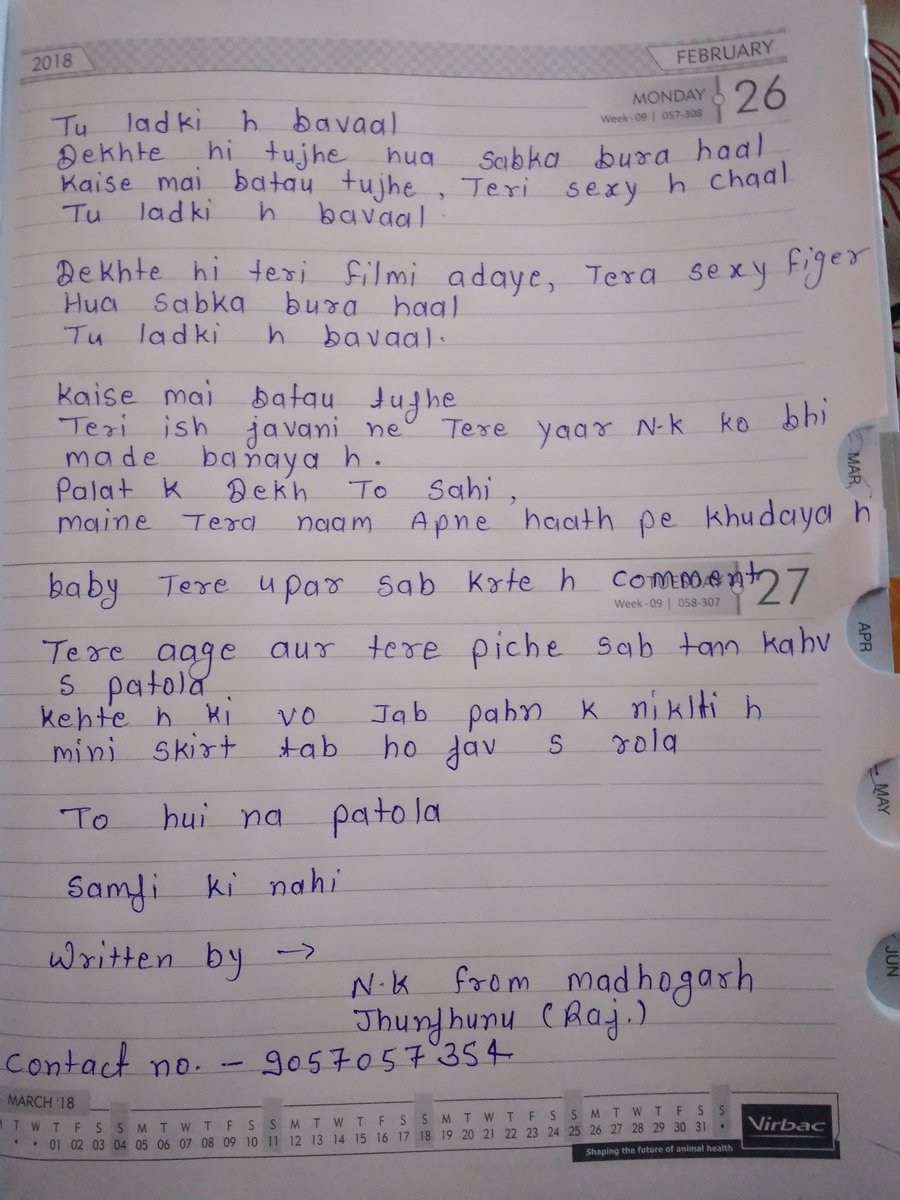 2018
FEBRUARY
MONDAY 26
Week-09 | 057-308
Tu ladki h bavaal
Dekhte hi tujhe hua sabka bura haal
Kaise mai batau tujhe, Teri sexy h chaal
Tu ladki h bavaal.
Dekhte hi teri filmi adaye, Tera sexy figer
Hua sabka bura haal
Tu ladki h bavaal.
Kaise mai batau tujhe
Teri ish javani ne Tere yaar N.K ko bhi
made banaya h.
Palat k Dekh To Sahi,
maine Tera naam Apne haath pe khudaya h
MAR
baby Tere upar sab krte h comment
27
Week-09 | 058-307
Tere aage aur tere piche sab tann kahv
APR
s patola
kehte h ki vo Jab pahn k niklti h
mini skirt tab ho jav s rola
MAY
To hui na patola
Samji ki nahi
Written by →
JUN
N.K from madhogarh
Jhunjhunu (Raj.)
Contact no. - 9057057354
MARCH '18
T W T F S S M T W T F S S M T W T F S S M T W T F S S M T W T F S S
• • 01 02 03 04 05 06 07 08 09 10 11 12 13 14 15 16 17 18 19 20 21 22 23 24 25 26 27 28 29 30 31 •
Virbac
Shaping the future of animal health